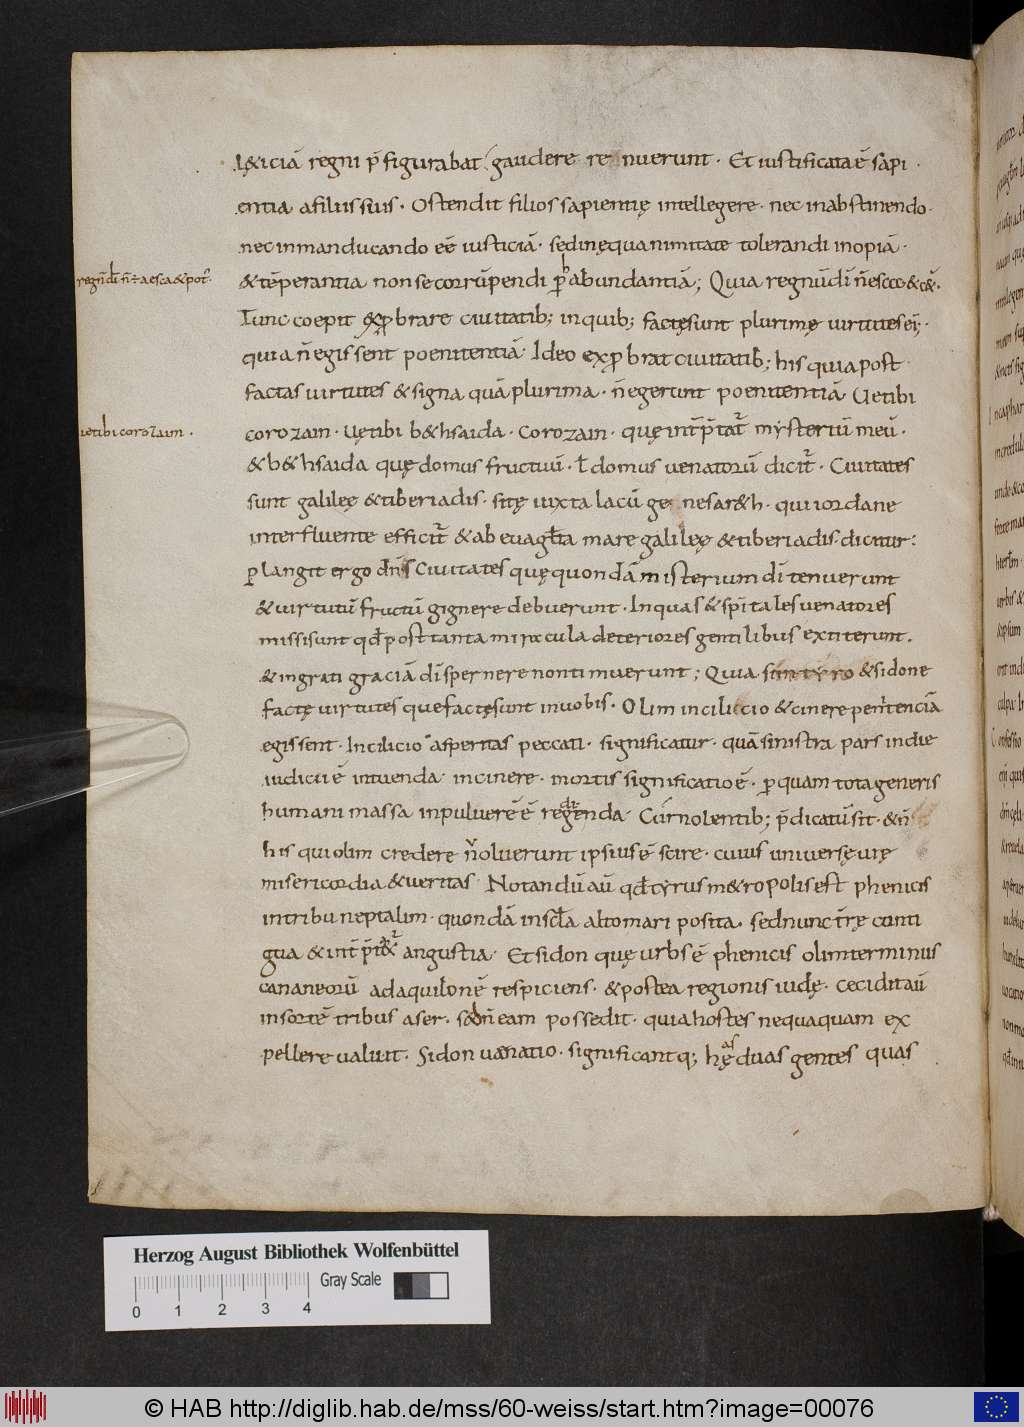 l&iciā regni p̄figurabat gaudere rennuerunt · Et iustificata ē sapi
entia a filiis suis · Ostendit filios sapientię intellegere · nec in abstinendo ·
nec in manducando eē iusticiā · sed in ęquanimitate tolerandi inopiā ·
regnū dī n̄ ÷ aesca & pot᷒ ·
& tēperantia non se corrūpendi p abundantiā ; Quia regnū dī n̄ esca & c&̄ ·
Tunc coepit exprobrare ciuitatib; in quib; factę sunt plurimę uirtutes ei; ·
quia n̄ egissent poenitentiā · Ideo exprobrat ciuitatib; his quia post
factas uirtutes & signa quā plurima · n̄ egerunt poenitentiā Uę tibi
uę tibi corozaim ·
corozain · Uę tibi b&hsaida · Corozain · quę int̄p̄tat᷒ mysteriū meū ·
& b&hsaida quę domus fructuū · ł domus uenatorū dicit᷒ · Ciuitates
sunt galileę & tiberiadis · sitę iuxta lacū genesar&h · qui iordane
interfluente efficit᷒ & ab euagl̄ta mare galileę & tiberiadis dicitur :
Plangit ergo dn̄s ciuitates quę quondā misterium dī tenuerunt
& uirtutū fructū gignere debuerunt · In quas & spītales uenatores
missi sunt qd̄ post tanta miracula deteriores gentilibus extiterunt ·
& ingrati graciā dī spernere non timuerunt ; Quia si in tyro & sidone
factę uirtutes que factę sunt in uobis · Olim in cilicio & cinere penitenciā
egissent · In cilicio asperitas peccati · significatur · quā sinistra pars in die
iudicii ē intuenda · in cinere · mortis significatio ē · p quam tota generis
humani massa in puluerē ē regenda Cur nolentib; p̄dicatū sit · & n̄
his qui olim credere n̄ noluerunt ipsius ē scire · cuius uniuersę uię
misericordia & ueritas · Notandū aū qd̄ tyrus m&ropolis est phenicis
in tribu neptalim · quondā insula alto mari posita · sed nunc tr̄ę conti
gua & int̄p̄tat᷒ angustia · Et sidon quę urbs ē phenicis olim terminus
cananeorū ad aquilonē respiciens · & postea regionis iudę · Cecidit aū
in sortē tribus aser · sed n̄ eam possedit · quia hostes nequaquam ex
pellere ualuit · Sidon uenatio · significantq; hę duas gentes quas
as
Herzog August Bibliothek Wolfenbüttel
Gray Scale
0 1 2 3 4
© HAB http://diglib.hab.de/mss/60-weiss/start.htm?image=00076